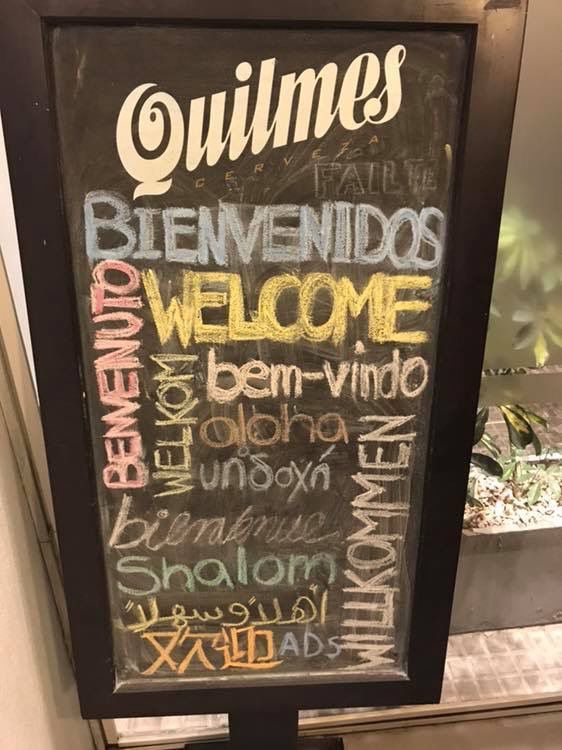 Quilmes
CERVEZA
FAILTE
BIENVENIDOS
BENVENUTO
WELCOME
WELKOM
bem-vindo
aloha
υποδοχή
WILLKOMMEN
bienvenue
Shalom
أهلاً وسهلاً
欢迎
ADS